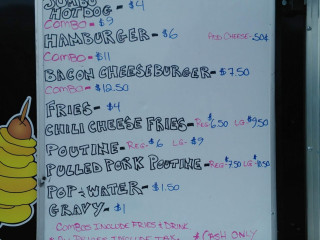 JUMBO
HOTDOG - $4
COMBO - $9
HAMBURGER - $6 ADD CHEESE - 50¢
COMBO - $11
BACON CHEESEBURGER - $7.50
COMBO - $12.50
FRIES - $4
CHILI CHEESE FRIES - REG - $6.50 LG - $9.50
POUTINE - REG - $6 LG - $9
PULLED PORK POUTINE - REG - $7.50 LG -
POP & WATER - $1.50
GRAVY - $1
COMBOS INCLUDE FRIES & DRINK
* ALL PRICES INCLUDE TAX * CASH ONLY